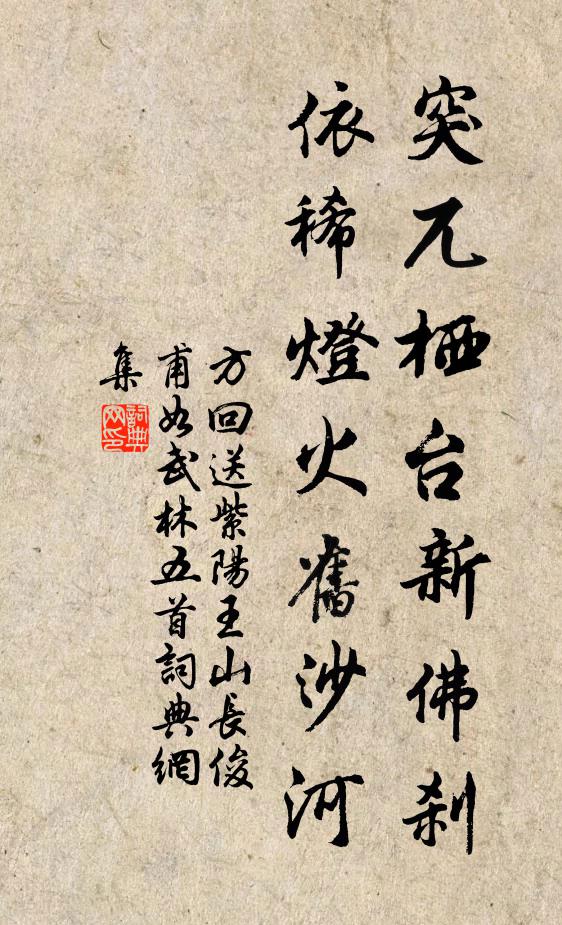 突兀栖台新佛刹
依稀燈火舊沙河
方回送紫陽王山長俊
甫如武林五首詞典網
集
詞典網印